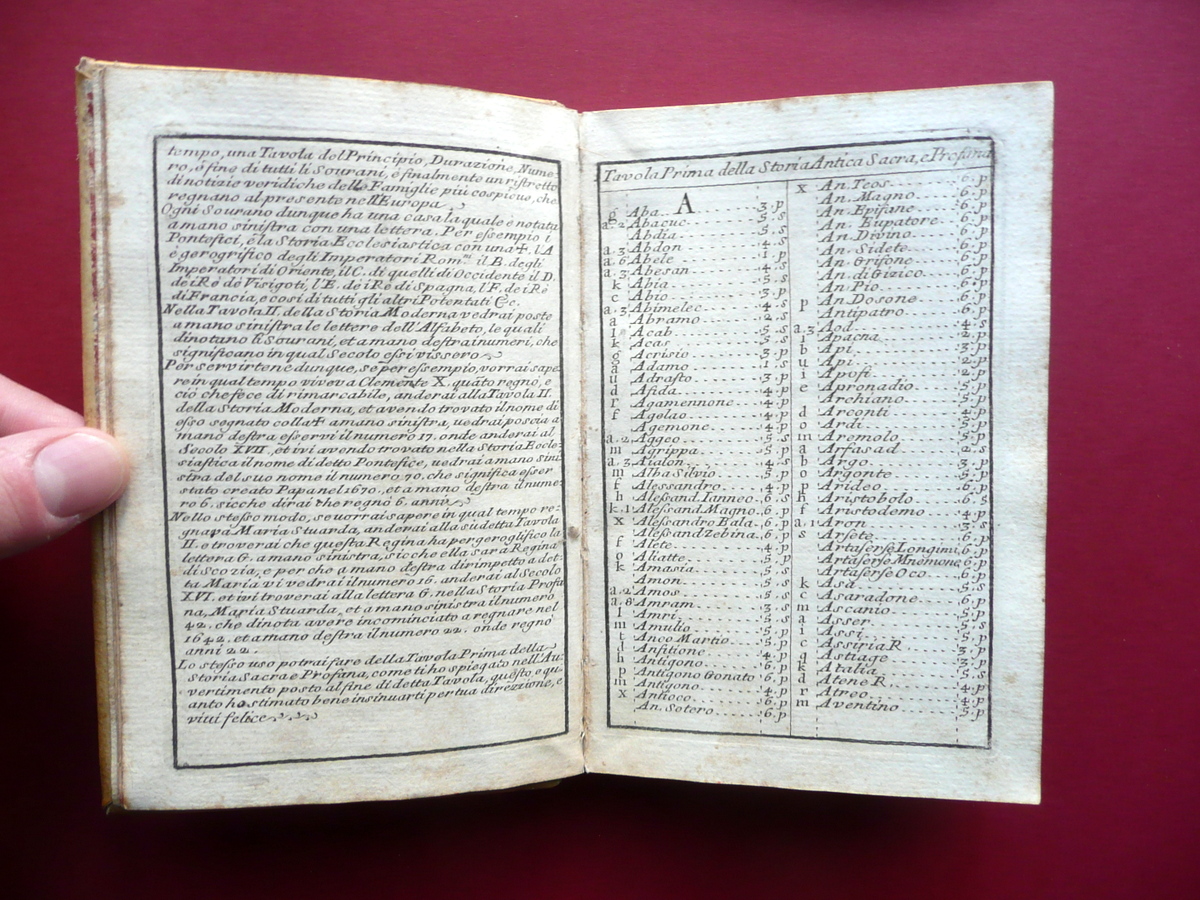 tempo, una Tavola del Principio, Durazione, Nume-
ro, è fine di tutti li Sourani, è finalmente un ristretto
di notizie veridiche delle Famiglie più cospicue, che
regnano al presente nell'Europa.
Ogni Sourano dunque ha una casa la quale è notata
a mano sinistra con una lettera. Per essempio i
Pontefici, è la Storia Ecclesiastica con una ☩. l'A
è gerogrifico degli Imperatori Rom.ni il B. degli
Imperatori di Oriente, il C. di quelli di Occidente il D.
de i Rè de Visigoti, l'E. de i Rè di Spagna, l'F. de i Rè
di Francia, e così di tutti gli altri Potentati &c.
Nella Tavola II. della Storia Moderna vedrai poste
a mano sinistra le lettere dell'Alfabeto, le quali
dinotano li Sourani, et a mano destra i numeri, che
significano in qual Secolo essi vissero
Per servirtene dunque, se per essempio, vorrai sape-
re in qual tempo viveva Clemente X. quāto regnò, e
ciò che fece di rimarcabile, anderai alla Tavola II.
della Storia Moderna, et avendo trovato il nome di
esso segnato colla ☩ a mano sinistra, vedrai poscia a
mano destra esservi il numero 17. onde anderai al
Secolo XVII, et ivi avendo trovato nella Storia Eccle-
siastica il nome di detto Pontefice, vedrai a mano sini-
stra del suo nome il numero 70. che significa esser
stato creato Papa nel 1670. et a mano destra il nume-
ro 6. sicche dirai che regnò 6. anni
Nello stesso modo, se uorrai sapere in qual tempo re-
gnava Maria Stuarda, anderai alla sudetta Tavola
II. e troverai che questa Regina ha per geroglifico la
lettera G. a mano sinistra, sicche ella sarà Regina
di Scozia, e per che a mano destra dirimpetto a det-
ta Maria vi vedrai il numero 16. anderai al Secolo
XVI. et ivi troverai alla lettera G. nella Storia Profa-
na, Maria Stuarda, et a mano sinistra il numero
42. che dinota avere incominciato a regnare nel
1642. et a mano destra il numero 22. onde regnò
anni 22.
Lo stesso uso potrai fare della Tavola Prima della
Storia Sacra e Profana, come ti ho spiegato nell'Au-
vertimento posto al fine di detta Tavola, questo, e qu-
anto ho stimato bene insinuarti per tua direzione, e
viui felice
Tavola Prima della Storia Antica Sacra, e Profana
A
g Aba 3. p
a. 2 Abacuc 5. s
Abdia 5. s
a. 3 Abdon 4. s
a. 6 Abele 1. p
a. 3 Abesan 4. s
k Abia 5. s
c Abio 3. p
a. 3 Abimelec 4. s
a Abramo 2. s
l Acab 5. s
k Acas 5. s
g Acrisio 3. p
a Adamo 1. s
u Adrasto 3. p
d Afida 4. p
r Agamennone 4. p
f Agelao 4. p
Agemone 4. p
a. 2 Aggeo 5. s
m Agrippa 5. p
a. 3 Aialon 4. s
m Alba Silvio 5. p
f Alessandro 4. p
h Alessand. Ianneo 6. s
k. 1 Alessand Magno 6. p
x Alessandro Bala 6. p
Alessand zebina 6. p
f Alete 4. p
o Aliatte 5. p
k Amasia 5. s
Amon 5. s
a. 2 Amos 5. s
a. 8 Amram 3. s
l Amri 5. s
m Amulio 5. p
t Anco Martio 5. p
d Anfitione 4. p
h Antigono 6. p
p Antigono Gonato 6. p
m Antigono 4. p
x Antioco 6. p
An. Sotero 6. p
x An. Teos 6. p
An. Magno 6. p
An. Epifane 6. p
An. Eupatore 6. p
An. Divino 6. p
An. Sidete 6. p
An. Grifone 6. p
An. di Gizico 6. p
An. Pio 6. p
p An. Dosone 6. p
Antipatro 6. p
a. 3 Aod 4. s
i Apacna 2. p
b Api 3. p
u Api 2. p
i Apofi 2. p
e Apronadio 5. p
Archiano 5. p
d Arconti 4. p
o Ardi 5. p
m Aremolo 5. p
a Arfasad 2. s
b Argo 3. p
o Argonte 5. p
p Arideo 6. p
h Aristobolo 6. s
f Aristodemo 4. p
a. 1 Aron 3. s
s Arsete 6. p
Artaserse Longimi. 6. p
Artaserse Mnemone 6. p
Artaserse Oco 6. p
k Asa 5. s
c Asaradone 6. p
m Ascanio 5. p
a Asser
i Assi
c Assiria R 3. p
q Astiage 5. p
k Atalia 5. s
d Atene R.
r Atreo 4. p
m Aventino 5. p